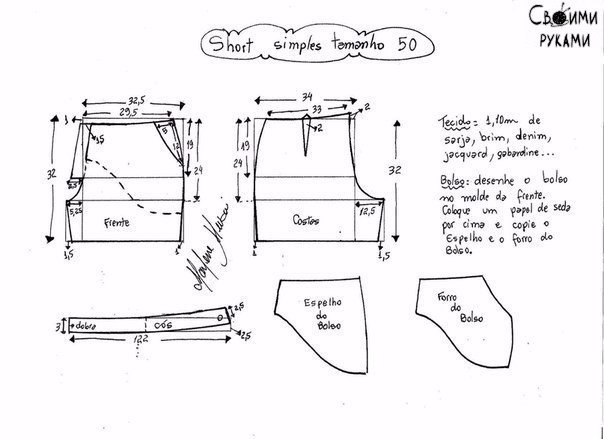 Своими
руками
Short simples tamanho 50
32,5
29,5
1
1,5
5
12
19
24
32
2,5
5,25
Frente
1,5
1
34
33
2
2
19
24
32
12,5
Costas
1
1,5
Tecido: 1,10m de
sarja, brim, denim,
jacquard, gabardine...
Bolso: desenhe o bolso
no molde da frente.
Coloque um papel de seda
por cima e copie o
Espelho e o forro do
Bolso.
3
dobra
cós
122
2,5
2,5
Espelho
do
Bolso
Forro
do
Bolso